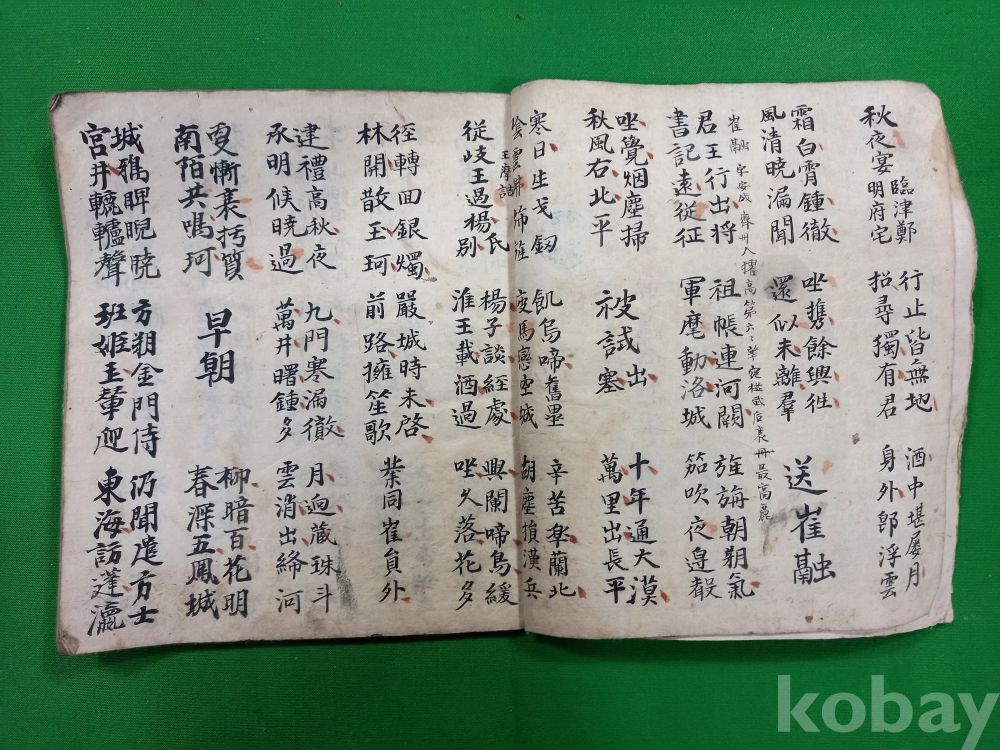 秋夜宴臨津鄭明府宅
行止皆無地
招尋獨有君
酒中堪屡月
身外即浮雲
霜白霄鍾徹
風清曉漏聞
坐携餘興徃
還似未離羣
送崔融
崔融字安成 齊州人擢高第 最高麗
君王行出将
書記遠從征
祖帳連河闕
軍麾動洛城
旌旃朝朔氣
笳吹夜邉聲
坐覺烟塵掃
秋風右北平
被試出塞
十年通大漠
萬里出長平
寒日生戈釰
陰雲拂旆旌
飢烏啼舊壘
疲馬戀空城
辛苦皐蘭北
胡塵損漢兵
從岐王過楊氏別
王摩詰
楊子談經處
淮王載酒過
興闌啼鳥緩
坐久落花多
徑轉回銀燭
林開散玉珂
嚴城時未啓
前路擁笙歌
業同崔員外
建禮高秋夜
承明候曉過
九門寒漏徹
萬井曙鍾多
月迥藏珠斗
雲消出絳河
更慚衰朽質
南陌共鳴珂
早朝
柳暗百花明
春深五鳳城
城鴉睥睨曉
宮井轆轤聲
方朔金門侍
班姬玉輦迎
仍聞遣方士
東海訪蓬瀛
kobay